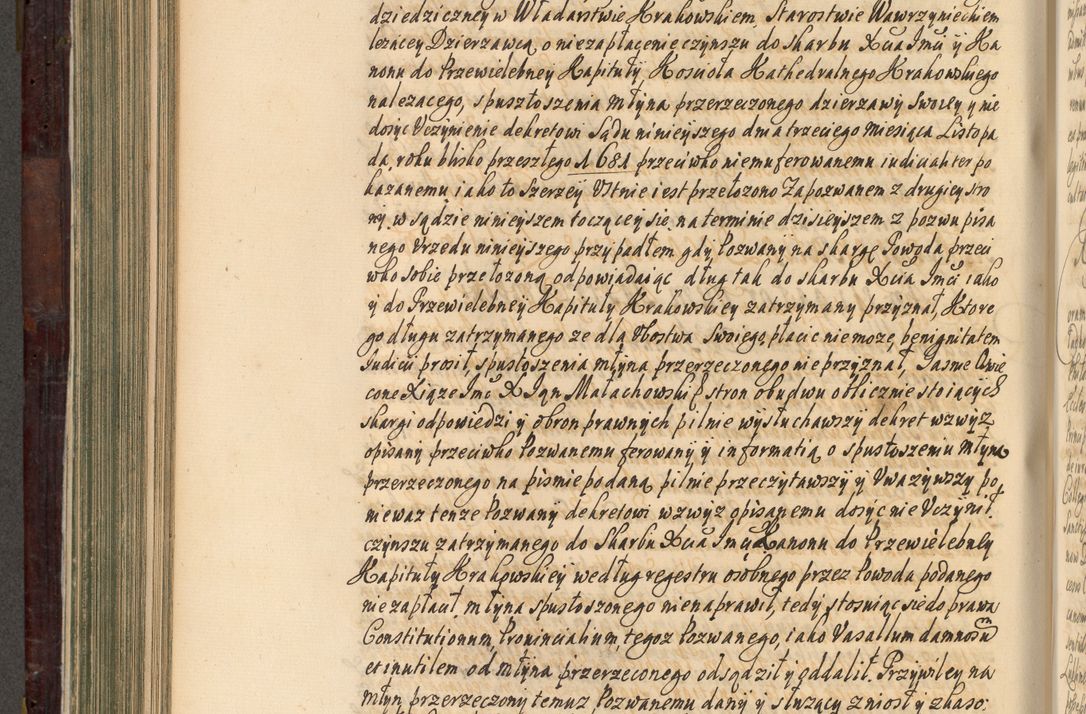 dziedziczney w Władarstwie Krakowskiem, Starostwie Wawrzynieckiem
leżącey Dzierzawcą, o niezapłacenie czynszu do skarbu Xcia Jmci y Ka
nonu do Przewielebney Kapituły, Kosciola Kathedralnego Krakowskiego
nalezącego, spusztoszenia Młyna przerzeczonego dzierzawy Swoiey y nie
dosyc Vczynienie dekretowi Sądu ninieyszego dnia trzeciego Miesiąca Listopa
da, roku blisko przeszłego 1681 przeciwko niemu ferowanemu iudicialiter po
kazanemu iako to Szerzey Vstnie iest przełozono Zapozwanem z drugiey stro
ny, w sądzie ninieyszem toczącey się, na terminie dzisieyszem z pozwu pisa
nego Vrzędu ninieyszego przypadłem, gdy Pozwany na skargę Powoda przeci
wko sobie przełozoną, odpowiadaiąc dług tak do skarbu Xcia Jmci iako
y do Przewielebney Kapituły Krakowskiey zatrzymany przyznał, Ktore
go długu zatrzymanego ze dla Vbostwa Swoiego, płacic nie moze, benignitatem
Judicii prosił, spustoszenia młyna przerzeczonego nie przyznał, Jasnie Oswie
cone Xiąze Jmc X Jan Małachowski stron obudwu oblicznie stoiących
skargi odpowiedzi y obron prawnych pilnie wysłuchawszy dekret wzwyz
opisany przeciwko Pozwanemu ferowany y informatią, o spustoszeniu Młyna
przerzeczonego na pismie podaną, pilnie przeczytawszy y Vwazywszy po
niewaz tenze Pozwany dekretowi wzwyz opisanemu dosyc nie Vczynił,
czynszu zatrzymanego do Skarbu Xcia Jmci Kanonu do Przewielebney
Kapituły Krakowskiey według regestru osobnego przez Powoda podanego
nie zapłacił, młyna spustoszonego nie naprawił, tedy stosuiąc sie do prawa
Constitutionum, Prouincialium, tegoz Pozwanego, iako Vasallum damnosum
et inutilem od młyna przerzeconego odsądził y oddalił. Przywiley na
młyn przerzeczony temuz Pozwanemu dany y słuzący zniosł y zkaso: